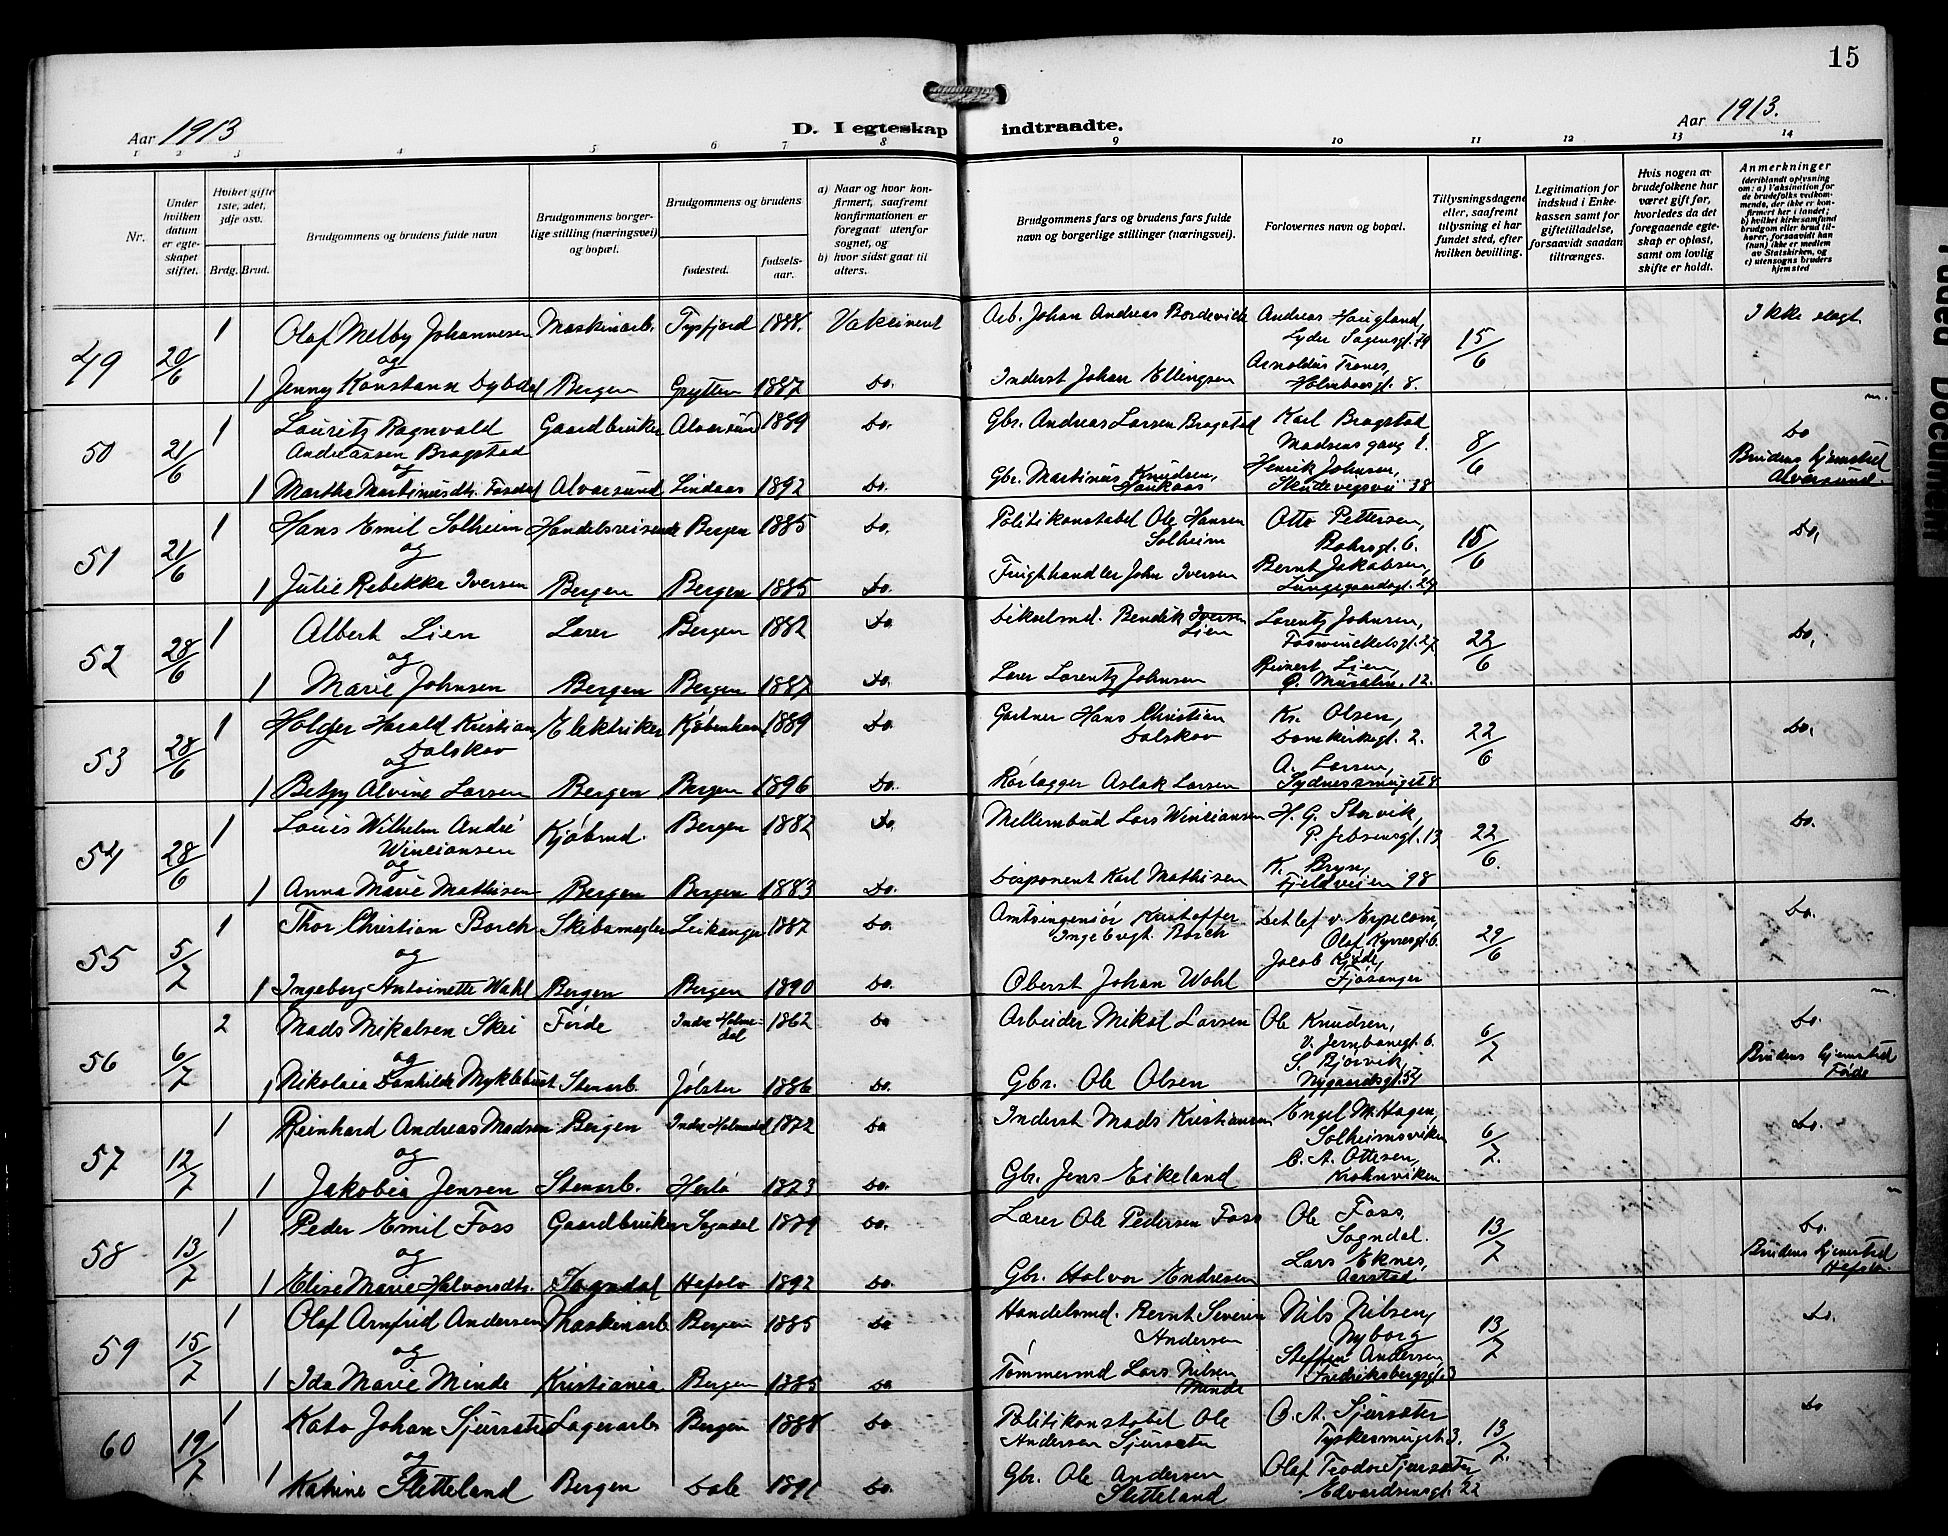 15
Aar 1913
D. I egteskap indtraadte.
Aar 1913.
1 2 3 4 5 6 7 8 9 10 11 12 13 14
Nr.
Under hvilken datum er egteskapet stiftet.
Hvilket gifte 1ste, 2det, 3dje osv.
Brdg. Brud.
Brudgommens og brudens fulde navn
Brudgommens borgerlige stilling (næringsvei) og bopæl.
Brudgommens og brudens
fødested.
fødselsaar.
a) Naar og hvor konfirmert, saafremt konfirmationen er foregaaet utenfor sognet, og
b) hvor sidst gaat til alters.
Brudgommens fars og brudens fars fulde navn og borgerlige stillinger (næringsvei).
Forlovernes navn og bopæl.
Tillysningsdagene eller, saafremt tillysning ei har fundet sted, efter hvilken bevilling.
Legitimation for indskud i Enkekassen samt for giftetilladelse, forsaavidt saadan tiltrænges.
Hvis nogen av brudefolkene har været gift før, hvorledes da det foregaaende egteskap er opløst, samt om lovlig skifte er holdt.
Anmerkninger (deriblandt oplysning om: a) Vaksination for de brudefolks vedkommende, der ikke er konfirmert her i landet; b) hvilket kirkesamfund brudgom eller brud tilhører, forsaavidt han (hun) ikke er medlem av Statskirken, og c) utensogns bruders hjemsted
49 20/6 1 Olaf Melby Johannesen Maskinarb. Tysfjord 1888. Vaksinert Arb. Johan Andreas Bordevick Andreas Haugland, 15/6 Ikke slegt
Lyder Sagensgt. 29
og Arnoldus Tranes,
1 Jenny Konstanse Dybdal Bergen Grytten 1887 Do. Inderst Johan Ellingsen Holmboesgt. 8.
50 21/6 1 Lauritz Ragnvald Gaardbruker Alversund 1889 Do. Gbr. Andreas Larsen Bragstad Karl Bragstad 8/6 Do
Andreassen Bragstad Madsens gang 1.
og Henrik Johnsen, Brudens hjemsted
1 Martha Martinusdtr. Fosdal Alversund Lindaas 1892 Do. Gbr. Martinus Knudsen, Haukaas Skudevigsvei 38 Alversund.
51 21/6 1 Hans Emil Solheim Handelsreisende Bergen 1885 Do. Politikonstabel Ole Hansen Otto Pettersen, 15/6 Do,
og Solheim
Bernt Jakobsen,
1 Julie Rebekka Iversen Bergen Bergen 1885 Do. Frugthandler John Iversen Lungegaardsgt. 29
52 28/6 1 Albert Lien Lærer Bergen 1882 Do Dikselmd. Bendik Iversen Lorentz Johnsen, 22/6 Do,
og Lien Fosswinckelsgt. 27
Reinert Lien,
1 Marie Johnsen Bergen Bergen 1887 Do. Lærer Lorentz Johnsen 12.
53 28/6 1 Holger Harald Kristian Elektriker Kjøbenhavn 1889 Do Gartner Hans Christian Kr. Olsen, 22/6 Do,
Dalskov Dalskov Domkirkegt. 2.
og A. Larsen,
1 Betzy Alvine Larsen Bergen Bergen 1896 Do. Rørlægger Aslak Larsen Sydnessmuget 8
54 28/6 1 Louis Wilhelm André Kjøbmd. Bergen 1882 Do Lars Winciansen H. G. Storvik, 22/6. Do.
Winciansen P. Jebsensgt. 13
og K. Bryn,
1 Anna Marie Mathisen Bergen Bergen 1883 Do. Disponent Karl Mathisen Fjeldveien 98
55 5/7 1 Thor Christian Borch Skibsmægler Leikanger 1887 Do Amtsingeniør Kristoffer Detlef v. Erpecom, 29/6 Do.
og Ingebrigt. Borch Olaf Kyrresgt. 6.
Jacob Kjøde,
1 Ingeborg Antoinette Wahl Bergen Bergen 1890 Do. Oberst Johan Wahl Fjøsanger
56 6/7 2 Mads Mikalsen Skei Førde Indre Holmedal 1862 Do Arbeider Mikal Larsen Ole Knudsen, 6/7 Do.
V. Jernbanegt. 6.
og S. Bjørvik, Brudens hjemsted
1 Nikolaia Danhilde Myklebust Stenarb. Jølster 1886 Do. Gbr. Ole Olsen Nygaardsgt. 54 Førde
57 12/7 1 Reinhard Andreas Madsen Bergen Indre Holmedal 1872 Do Inderst Mads Kristiansen Engel M. Hagen, 6/7. Do.
og Solheimsviken
A. Ottesen,
1 Jakobia Jensen Stenarb. Herlø 1873 Do. Gbr. Jens Eikeland Krohnviken
58 13/7 1 Peder Emil Foss Gaardbruker Sogndal 1879 Do. Lærer Ole Pedersen Foss Ole Foss, 13/7 Do.
og Sogndal.
Lars Eknes, Brudens hjemsted
1 Elise Marie Halvorsdtr. Sogndal Hafslo 1892 Do. Gbr. Halvor Endresen Aarstad Hafslo.
59 15/7 1 Olaf Arnfrid Andersen Maskinarb Bergen 1885 Do Handelsmd. Bernt Severin Nils Nilsen, 13/7 Do.
og Andersen Nyborg
Steffen Andersen,
1 Ida Marie Minde Kristiania Bergen 1885 Do Tømmermd Lars Nilsen Minde Fredriksbergsgt. 3
60 19/7 1 Kato Johan Sjursæter Lagerarb Bergen 1888 Do Politikonstabel Ole A. Sjursæter 13/7. Do
og Andersen Sjursæter Tyskesmuget 3.
1 Katrine Sletteland Bergen Dale 1891 Do. Gbr. Ole Andersen Olaf Teodor Sjursæter
Sletteland Edvardsensgt. 22